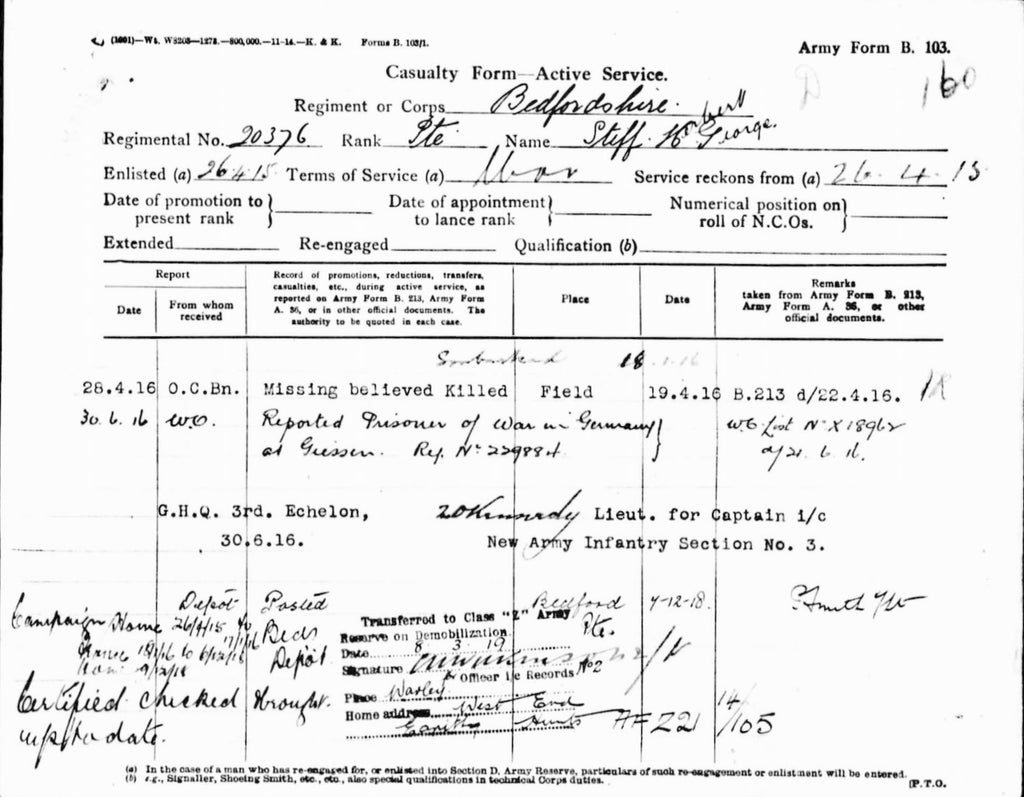 (1001)—Wt. W3203—1273.—800,000.—11-14.—K. & K. Forms B. 103/1.
Army Form B. 103.
160
Casualty Form—Active Service.
Regiment or Corps Bedfordshire.
Regimental No. 20376 Rank Pte Name Stiff Herbert George.
Enlisted (a) 26.4.15 Terms of Service (a) War Service reckons from (a) 26.4.15
Date of promotion to present rank } Date of appointment to lance rank } Numerical position on roll of N.C.Os. }
Extended Re-engaged Qualification (b)
Report
Date
From whom received
Record of promotions, reductions, transfers, casualties, etc., during active service, as reported on Army Form B. 213, Army Form A. 36, or in other official documents. The authority to be quoted in each case.
Place
Date
Remarks taken from Army Form B. 213, Army Form A. 36, or other official documents.
18
28.4.16 O.C.Bn. Missing believed Killed Field 19.4.16 B.213 d/22.4.16.
30.6.16 W.O. Reported Prisoner of War in Germany W.O. List No X 18962
at Giessen. Ref. No. 229884. d/21.6.16.
G.H.Q. 3rd. Echelon, Kennedy Lieut. for Captain i/c
30.6.16. New Army Infantry Section No. 3.
Depôt Posted Bedford 7-12-18.
Campaign Home 26/4/15 to 17/1/16 Beds
France 18/1/16 to 6/12/18 Depôt
Transferred to Class "Z" Army
Reserve on Demobilization. Pte.
Date 8 3 19
Signature
Officer i/c Records No 2
Certified checked
up to date.
Place Warley
Home address West End
Earith Hunts AF Z21 14/105
(a) In the case of a man who has re-engaged for, or enlisted into Section D, Army Reserve, particulars of such re-engagement or enlistment will be entered.
(b) e.g., Signaller, Shoeing Smith, etc., etc., also special qualifications in technical Corps duties.
[P.T.O.